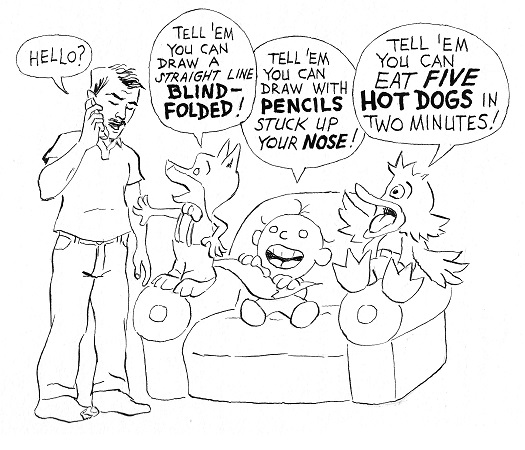 HELLO?
TELL 'EM
YOU CAN
DRAW A
STRAIGHT LINE
BLIND-
FOLDED!
TELL 'EM
YOU CAN
DRAW WITH
PENCILS
STUCK UP
YOUR NOSE!
TELL 'EM
YOU CAN
EAT FIVE
HOT DOGS IN
TWO MINUTES!